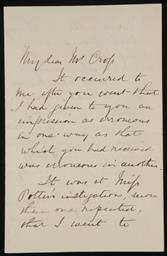 My dear Mr Cross
It occurred to
me after you went that
I had given to you an
impression as erroneous
in one way as that
which you had received
was erroneous in another.
It was at Miss
Potter's instigation, more
than once repeated,
that I went to